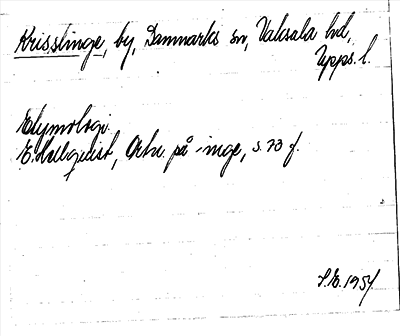 Krisslinge, by, Danmarks sn, Vaksala hd,
Upps. l.
Etymologi.
E. Hellquist, Ortn. på -inge, s. 73 f.
S.E. 195